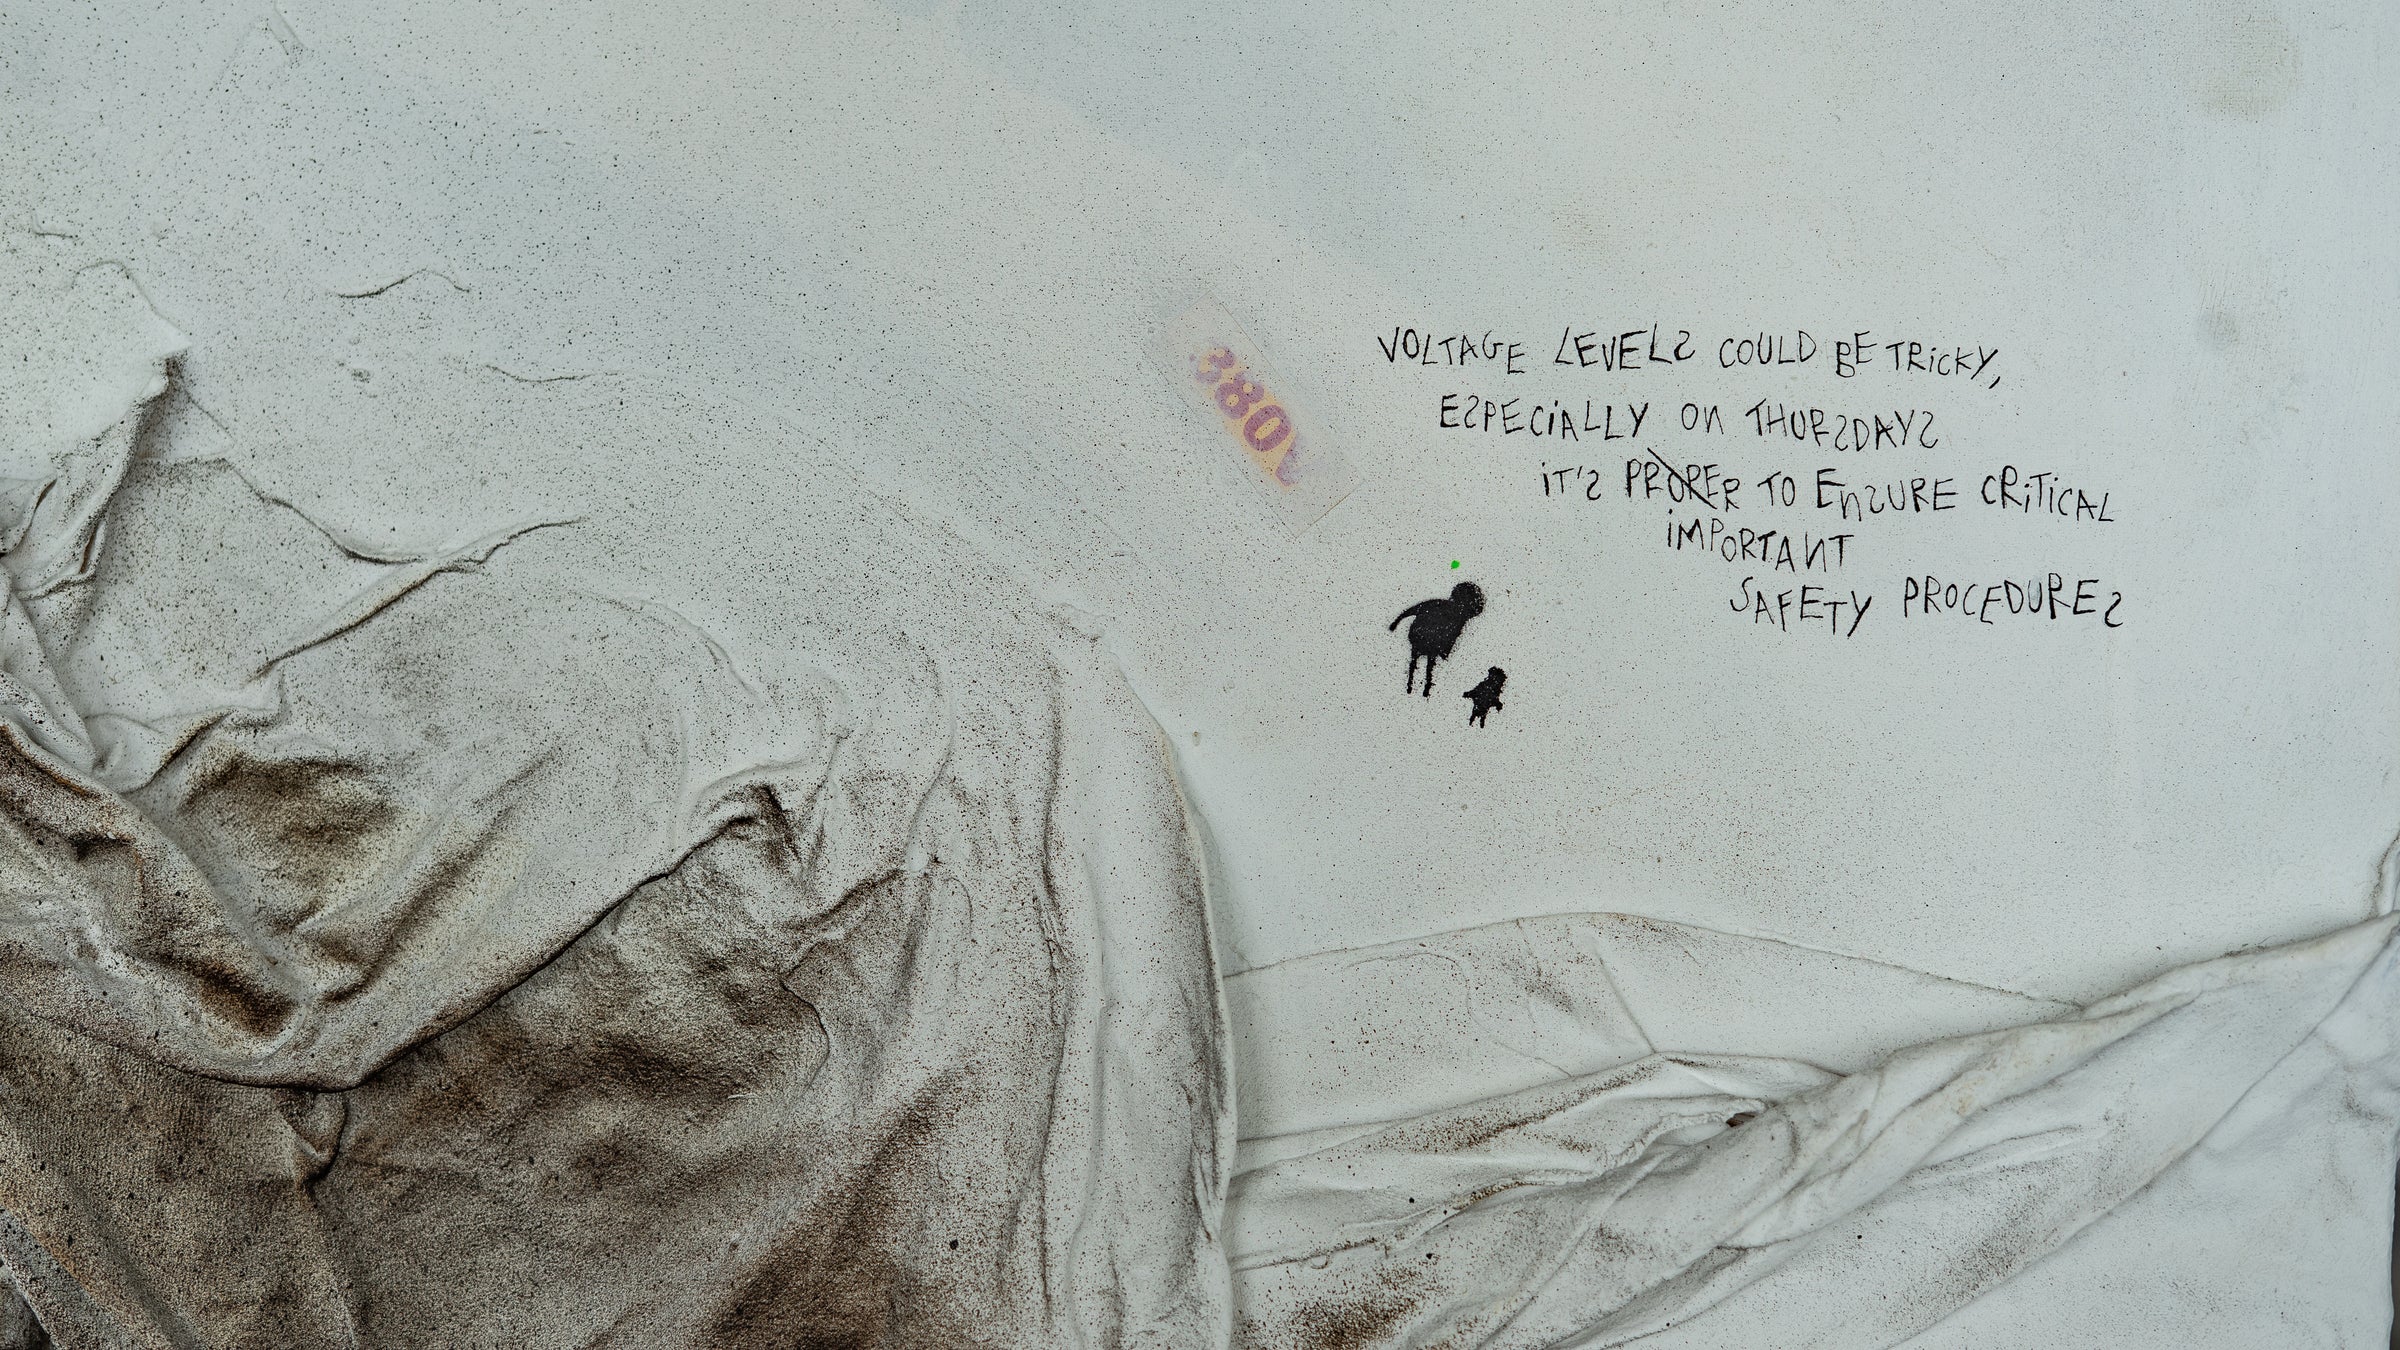 380V
VOLTAGE LEVELS COULD BE TRiCKY,
ESPECiALLY ON THURSDAYS
iT'S PROPER TO EnSURE CRiTiCAL
iMPORTANT
SAFETY PROCEDURES